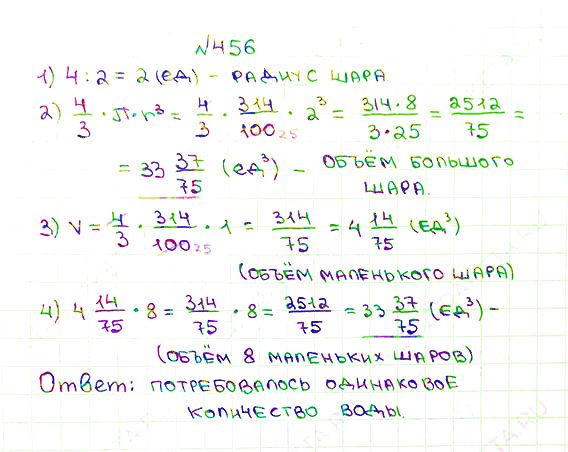 №456
1) 4 : 2 = 2 (ед) - радиус шара
2) 4/3 · π · r³ = 4/3 · 314/100 25 · 2³ = 314 · 8/3 · 25 = 2512/75 =
= 33 37/75 (ед³) - объём большого
шара.
3) V = 4/3 · 314/100 25 · 1 = 314/75 = 4 14/75 (ед³)
(объём маленького шара)
4) 4 14/75 · 8 = 314/75 · 8 = 2512/75 = 33 37/75 (ед³) -
(объём 8 маленьких шаров)
Ответ: потребовалось одинаковое
количество воды.